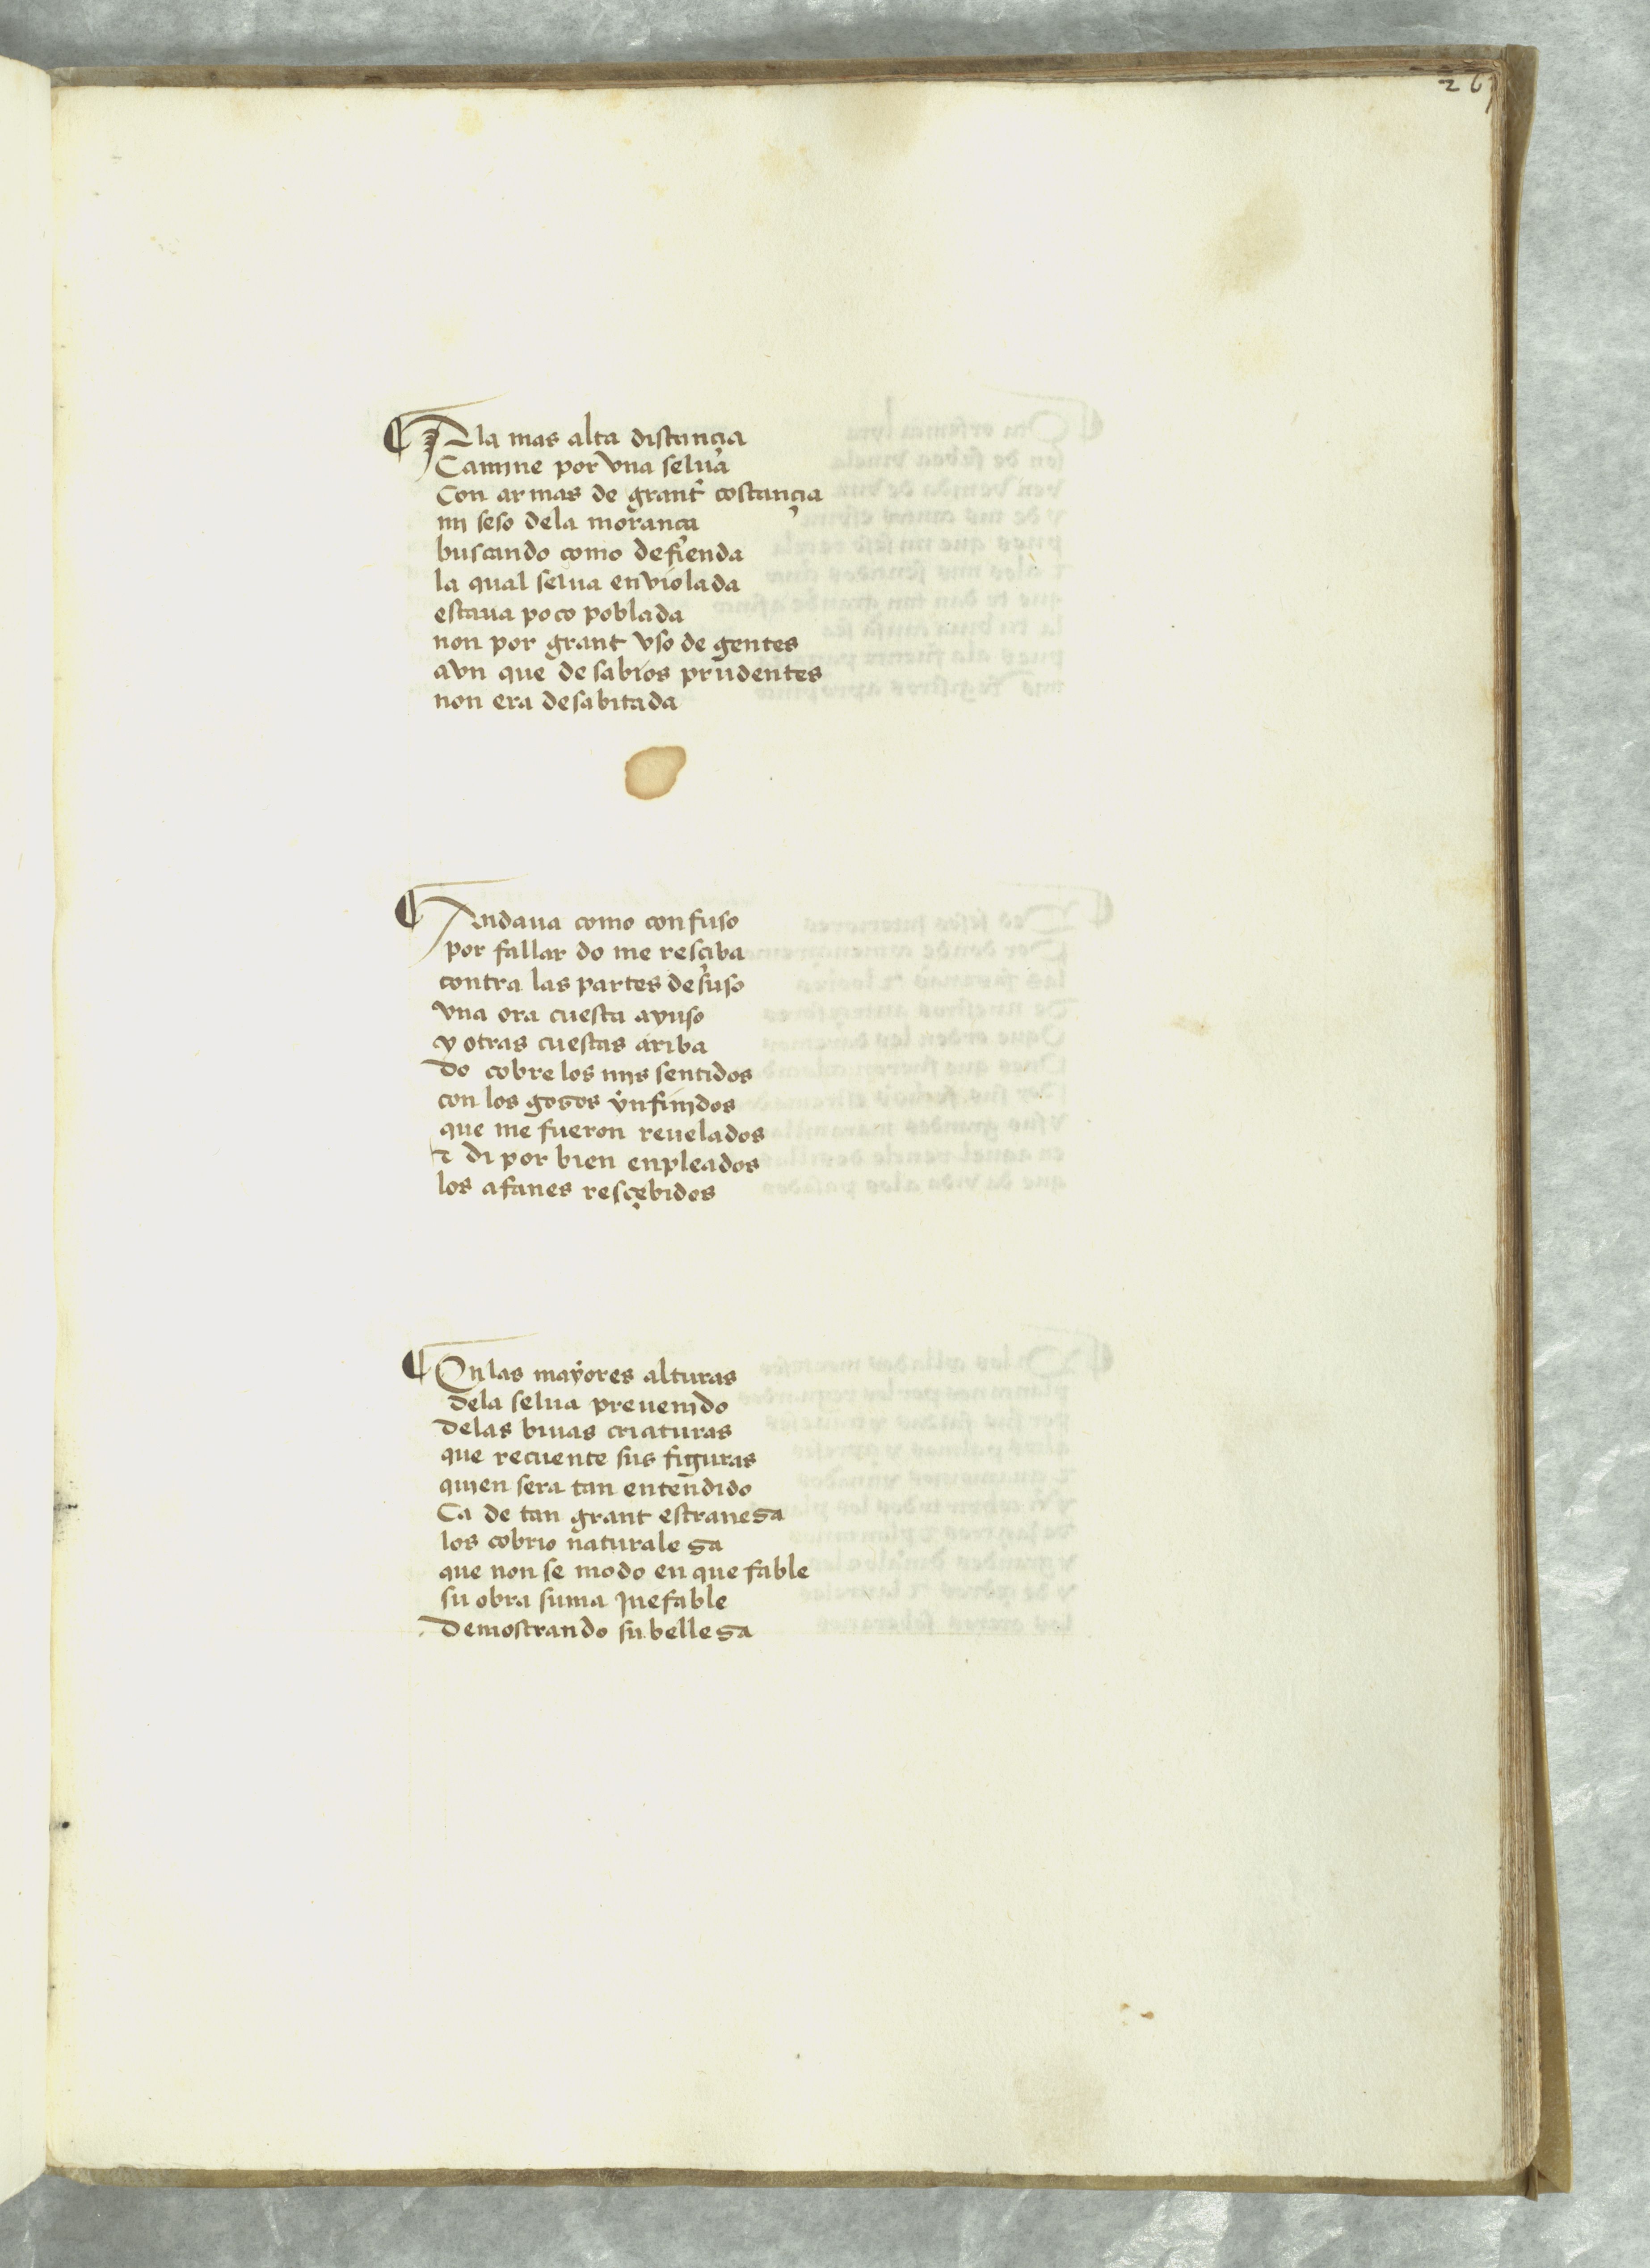 267
¶ A la mas alta distançia
Camine por vna selua
Con armas de grant costançia
mi seso dela morança
buscando como defienda
la qual selua enviolada
estaua poco poblada
non por grant vso de gentes
avn que de sabios prudentes
non era desabitada
¶ Andaua como confuso
por fallar do me resçiba
contra las partes desuso
vna ora cuesta ayuso
y otras cuestas ariba
do cobre los mis sentidos
con los gozos ynfinidos
que me fueron reuelados
τ di por bien enpleados
los afanes resçebidos
¶ En las mayores alturas
dela selua preuenido
delas biuas criaturas
que recuente sus figuras
quien sera tan entendido
Ca de tan grant estraneza
los cobrio naturaleza
que non se modo en que fable
su obra suma Jnefable
demostrando su belleza